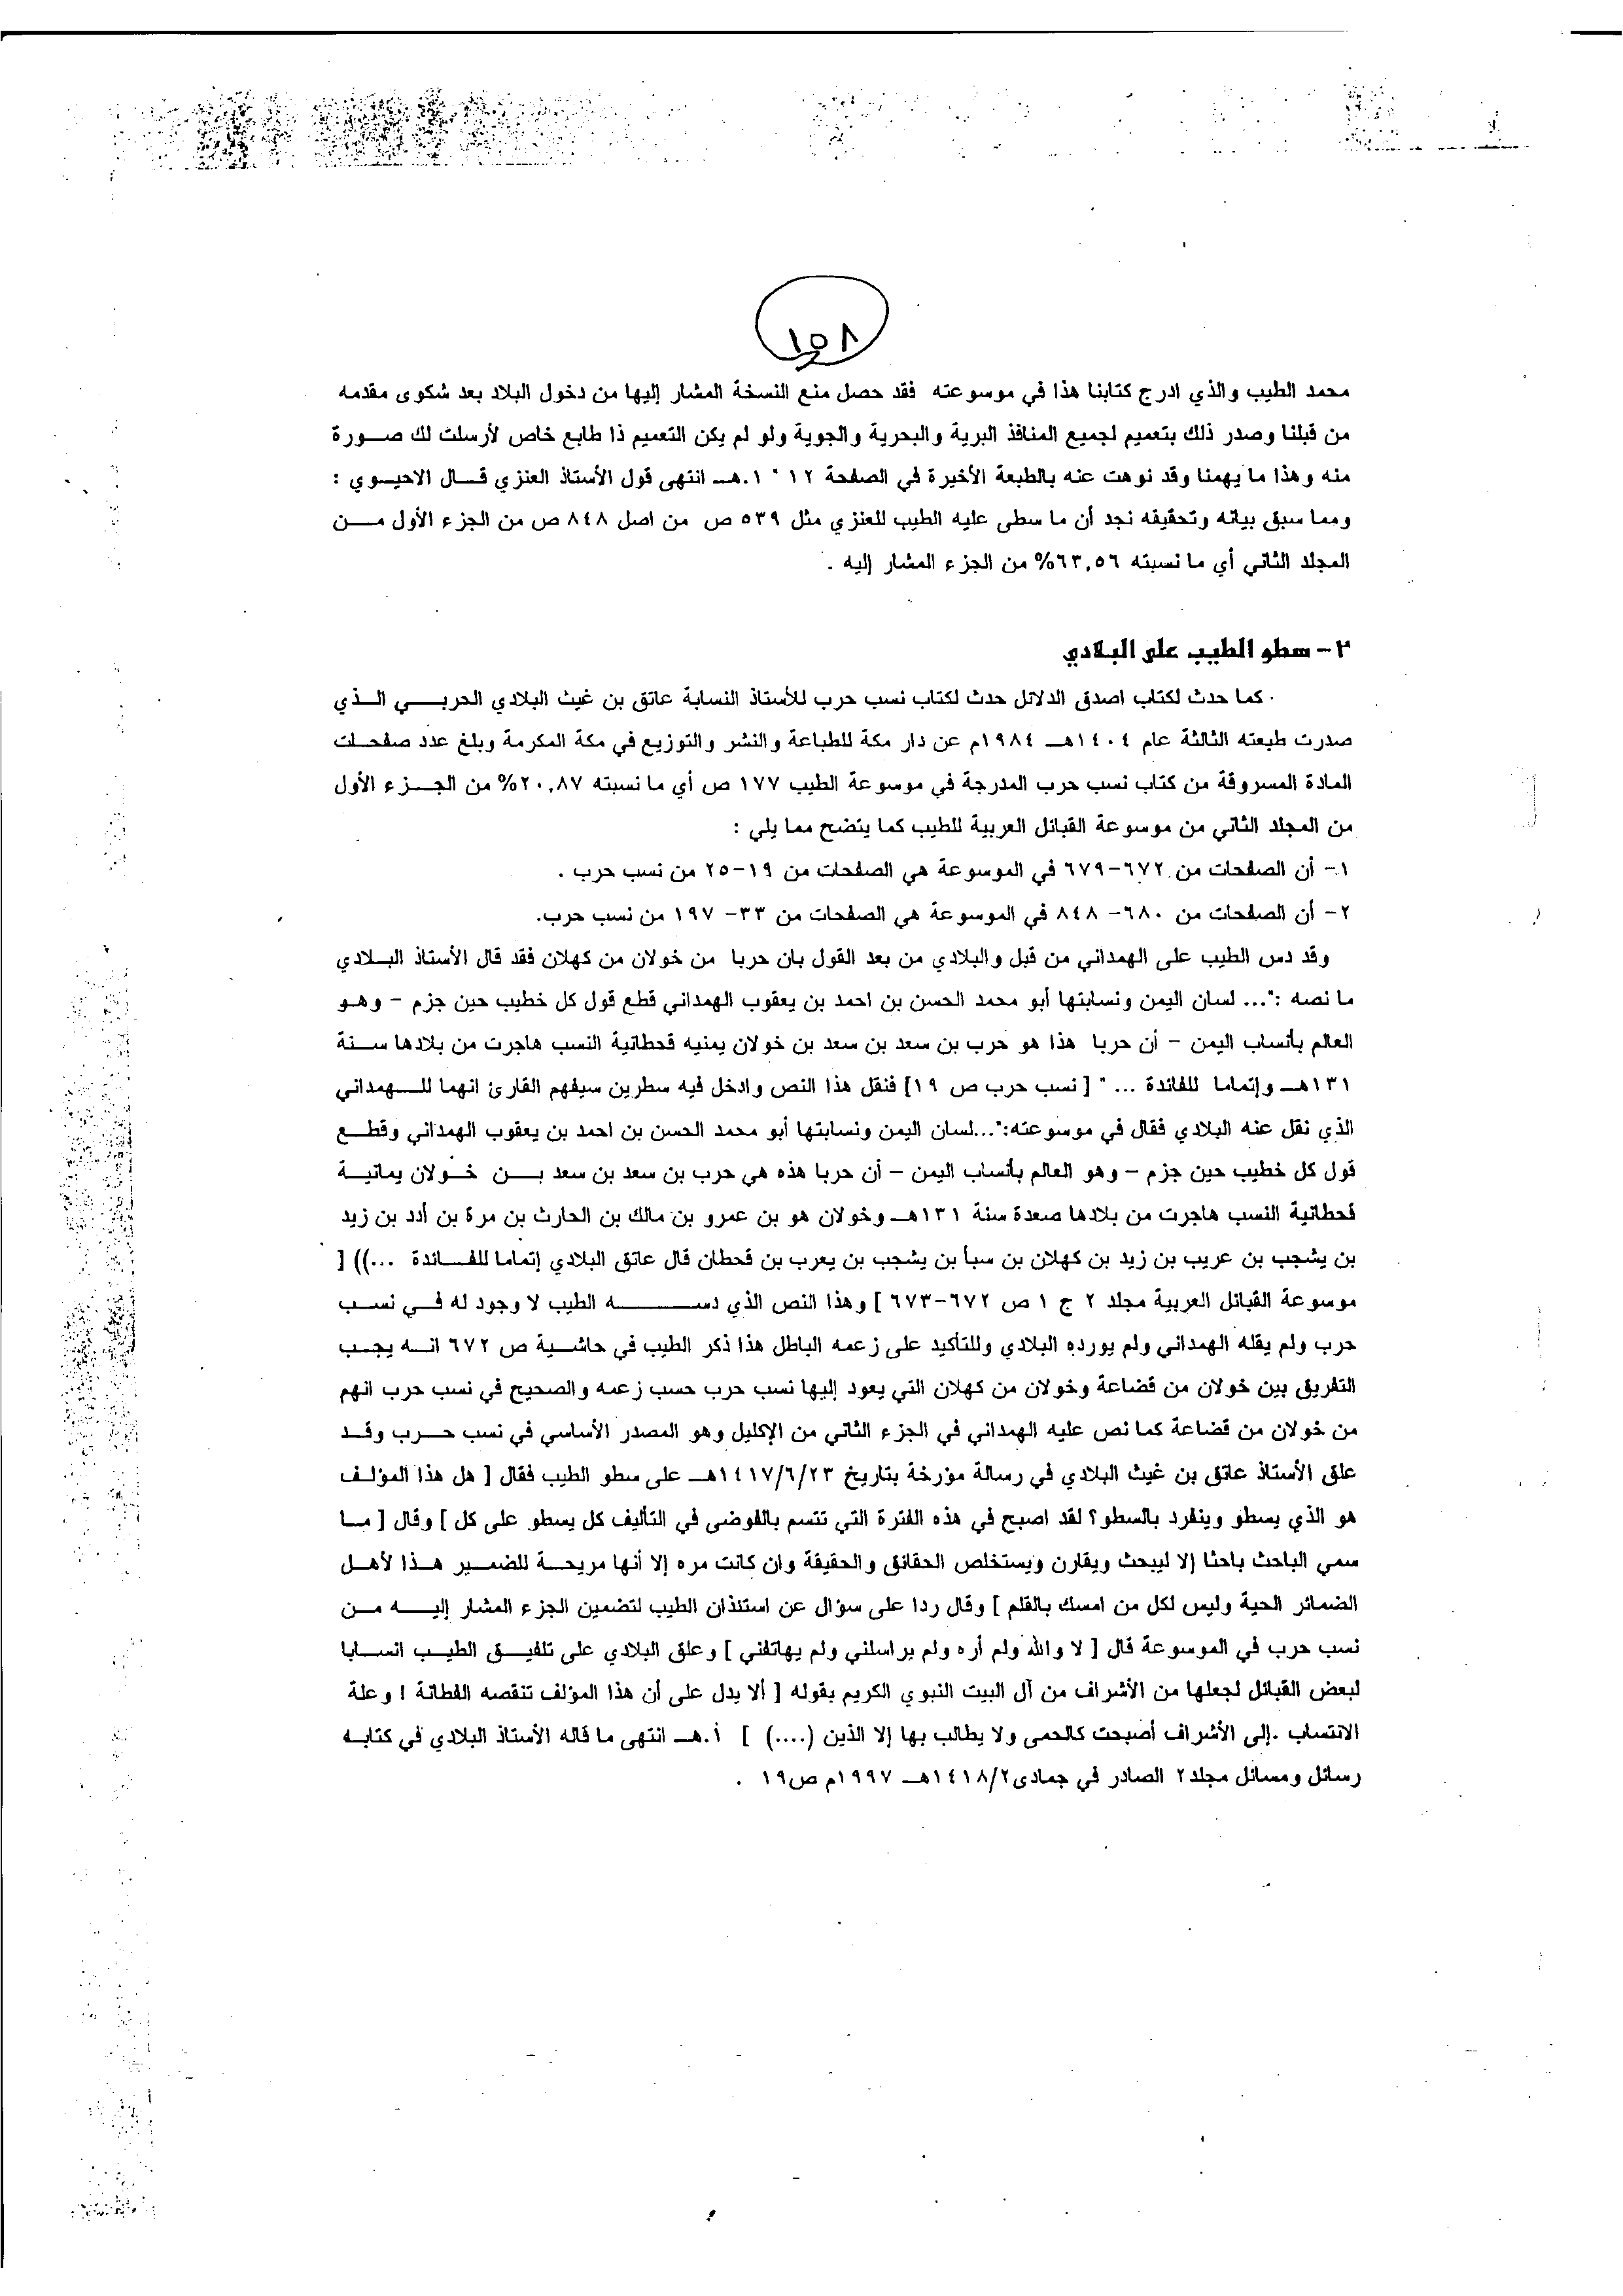 ١٥٨
محمد الطيب والذي ادرج كتابنا هذا في موسوعته فقد حصل منع النسخة المشار إليها من دخول البلاد بعد شكوى مقدمه
من قبلنا وصدر ذلك بتعميم لجميع المنافذ البرية والبحرية والجوية ولو لم يكن التعميم ذا طابع خاص لأرسلت لك صورة
منه وهذا ما يهمنا وقد نوهت عنه بالطبعة الأخيرة في الصفحة ١٢ " ا.هـ انتهى قول الأستاذ العنزي قال الاحيوي :
ومما سبق بيانه وتحقيقه نجد أن ما سطى عليه الطيب للعنزي مثل ٥٣٩ ص من اصل ٨٤٨ ص من الجزء الأول من
المجلد الثاني أي ما نسبته ٦٣,٥٦% من الجزء المشار إليه .
٢- سطو الطيب على البلادي
كما حدث لكتاب اصدق الدلائل حدث لكتاب نسب حرب للأستاذ النسابة عاتق بن غيث البلادي الحربي الذي
صدرت طبعته الثالثة عام ١٤٠٤هـ ١٩٨٤م عن دار مكة للطباعة والنشر والتوزيع في مكة المكرمة وبلغ عدد صفحات
المادة المسروقة من كتاب نسب حرب المدرجة في موسوعة الطيب ١٧٧ ص أي ما نسبته ٢٠,٨٧% من الجزء الأول
من المجلد الثاني من موسوعة القبائل العربية للطيب كما يتضح مما يلي :
١- أن الصفحات من ٦٧٢-٦٧٩ في الموسوعة هي الصفحات من ١٩-٢٥ من نسب حرب .
٢- أن الصفحات من ٦٨٠- ٨٤٨ في الموسوعة هي الصفحات من ٣٣- ١٩٧ من نسب حرب.
وقد دس الطيب على الهمداني من قبل والبلادي من بعد القول بان حربا من خولان من كهلان فقد قال الأستاذ البلادي
ما نصه :"... لسان اليمن ونسابتها أبو محمد الحسن بن احمد بن يعقوب الهمداني قطع قول كل خطيب حين جزم - وهو
العالم بأنساب اليمن - أن حربا هذا هو حرب بن سعد بن سعد بن خولان يمنيه قحطانية النسب هاجرت من بلادها سنة
١٣١هـ وإتماما للفائدة ... " [ نسب حرب ص ١٩] فنقل هذا النص وادخل فيه سطرين سيفهم القارئ انهما للهمداني
الذي نقل عنه البلادي فقال في موسوعته:"...لسان اليمن ونسابتها أبو محمد الحسن بن احمد بن يعقوب الهمداني وقطع
قول كل خطيب حين جزم - وهو العالم بأنساب اليمن - أن حربا هذه هي حرب بن سعد بن سعد بن خولان يمانية
قحطانية النسب هاجرت من بلادها صعدة سنة ١٣١هـ وخولان هو بن عمرو بن مالك بن الحارث بن مرة بن أدد بن زيد
بن يشجب بن عريب بن زيد بن كهلان بن سبأ بن يشجب بن يعرب بن قحطان قال عاتق البلادي إتماما للفائدة ...)) [
موسوعة القبائل العربية مجلد ٢ ج ١ ص ٦٧٢-٦٧٣ ] وهذا النص الذي دسه الطيب لا وجود له في نسب
حرب ولم يقله الهمداني ولم يورده البلادي وللتأكيد على زعمه الباطل هذا ذكر الطيب في حاشية ص ٦٧٢ انه يجب
التفريق بين خولان من قضاعة وخولان من كهلان التي يعود إليها نسب حرب حسب زعمه والصحيح في نسب حرب انهم
من خولان من قضاعة كما نص عليه الهمداني في الجزء الثاني من الإكليل وهو المصدر الأساسي في نسب حرب وقد
علق الأستاذ عاتق بن غيث البلادي في رسالة مؤرخة بتاريخ ١٤١٧/٦/٢٣هـ على سطو الطيب فقال [ هل هذا المؤلف
هو الذي يسطو وينفرد بالسطو؟ لقد اصبح في هذه الفترة التي تتسم بالفوضى في التأليف كل يسطو على كل ] وقال [ ما
سمي الباحث باحثا إلا ليبحث ويقارن ويستخلص الحقائق والحقيقة وان كانت مره إلا أنها مريحة للضمير هذا لأهل
الضمائر الحية وليس لكل من امسك بالقلم ] وقال ردا على سؤال عن استئذان الطيب لتضمين الجزء المشار إليه من
نسب حرب في الموسوعة قال [ لا والله ولم أره ولم يراسلني ولم يهاتفني ] وعلق البلادي على تلفيق الطيب انسابا
لبعض القبائل لجعلها من الأشراف من آل البيت النبوي الكريم بقوله [ ألا يدل على أن هذا المؤلف تنقصه الفطانة ! وعلة
الانتساب .إلى الأشراف أصبحت كالحمى ولا يطالب بها إلا الذين (....) ] أ.هـ انتهى ما قاله الأستاذ البلادي في كتابه
رسائل ومسائل مجلد٢ الصادر في جمادى١٤١٨/٢هـ ١٩٩٧م ص١٩ .